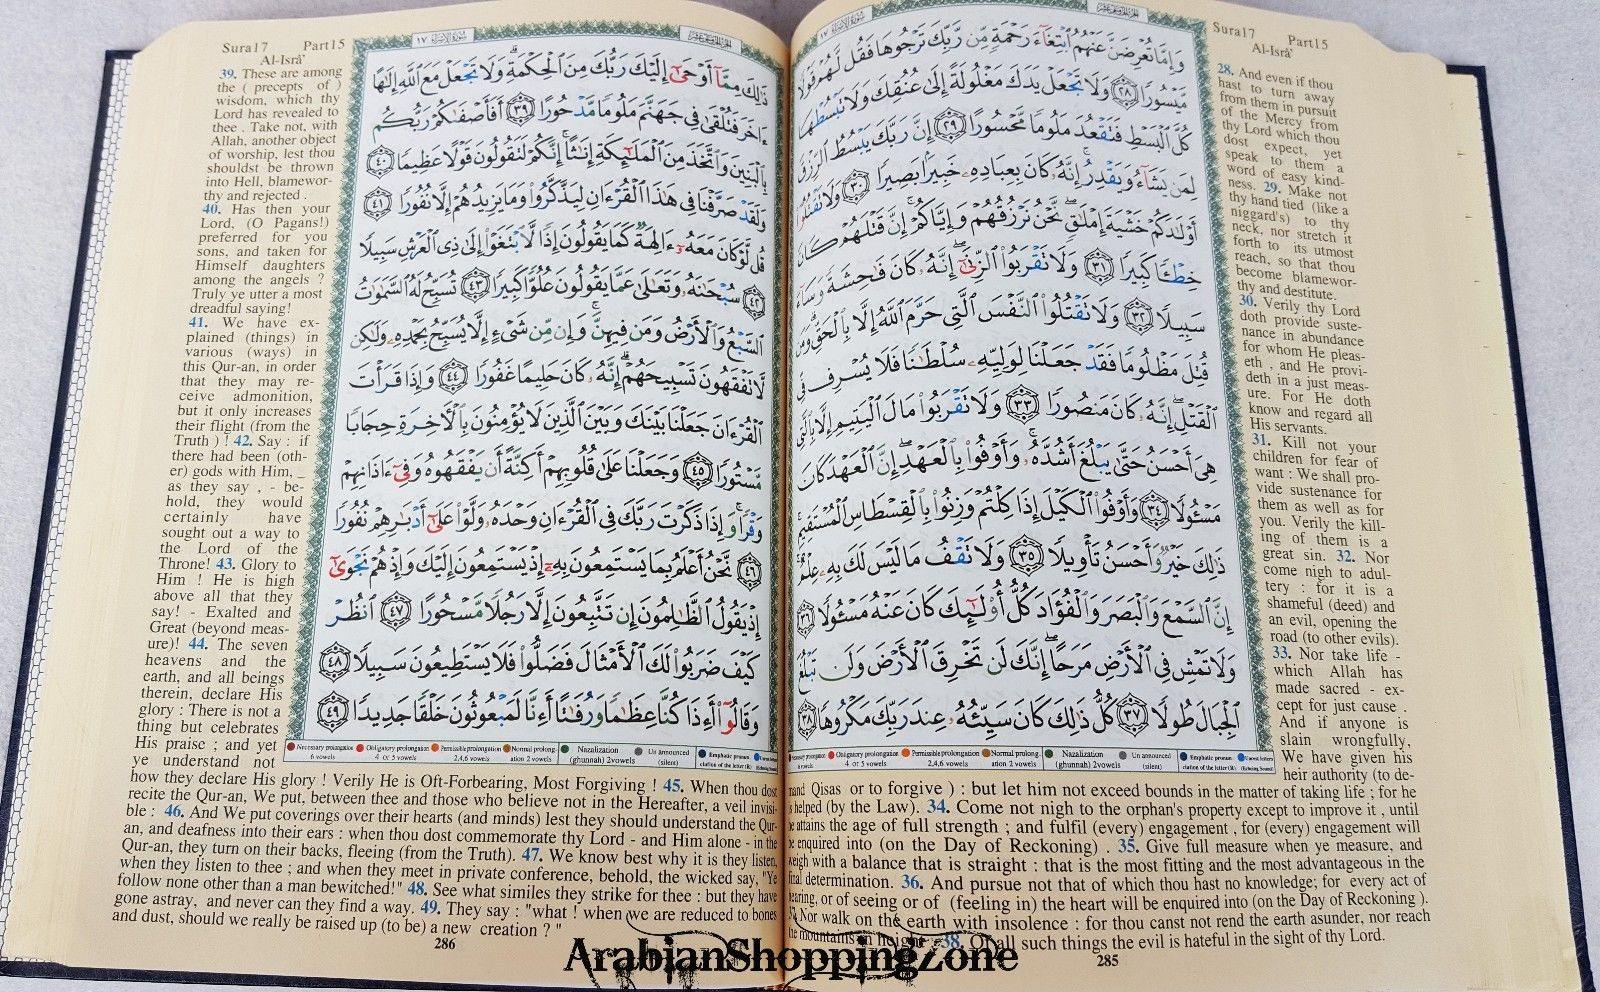 Sura17 Part15
Al-Isrâ'
سورة الإسراء ١٧
وَإِمَّا تُعْرِضَنَّ عَنْهُمُ ٱبْتِغَآءَ رَحْمَةٍ مِّن رَّبِّكَ تَرْجُوهَا فَقُل لَّهُمْ قَوْلًا
مَّيْسُورًا ٢٨ وَلَا تَجْعَلْ يَدَكَ مَغْلُولَةً إِلَىٰ عُنُقِكَ وَلَا تَبْسُطْهَا
كُلَّ ٱلْبَسْطِ فَتَقْعُدَ مَلُومًا مَّحْسُورًا ٢٩ إِنَّ رَبَّكَ يَبْسُطُ ٱلرِّزْقَ
لِمَن يَشَآءُ وَيَقْدِرُ إِنَّهُۥ كَانَ بِعِبَادِهِۦ خَبِيرًۢا بَصِيرًا ٣٠ وَلَا تَقْتُلُوٓا۟
أَوْلَٰدَكُمْ خَشْيَةَ إِمْلَٰقٍ نَّحْنُ نَرْزُقُهُمْ وَإِيَّاكُمْ إِنَّ قَتْلَهُمْ كَانَ
خِطْـًٔا كَبِيرًا ٣١ وَلَا تَقْرَبُوا۟ ٱلزِّنَىٰٓ إِنَّهُۥ كَانَ فَٰحِشَةً وَسَآءَ
سَبِيلًا ٣٢ وَلَا تَقْتُلُوا۟ ٱلنَّفْسَ ٱلَّتِى حَرَّمَ ٱللَّهُ إِلَّا بِٱلْحَقِّ وَمَن
قُتِلَ مَظْلُومًا فَقَدْ جَعَلْنَا لِوَلِيِّهِۦ سُلْطَٰنًا فَلَا يُسْرِف فِّى
ٱلْقَتْلِ إِنَّهُۥ كَانَ مَنصُورًا ٣٣ وَلَا تَقْرَبُوا۟ مَالَ ٱلْيَتِيمِ إِلَّا بِٱلَّتِى
هِىَ أَحْسَنُ حَتَّىٰ يَبْلُغَ أَشُدَّهُۥ وَأَوْفُوا۟ بِٱلْعَهْدِ إِنَّ ٱلْعَهْدَ كَانَ
مَسْـُٔولًا ٣٤ وَأَوْفُوا۟ ٱلْكَيْلَ إِذَا كِلْتُمْ وَزِنُوا۟ بِٱلْقِسْطَاسِ ٱلْمُسْتَقِيمِ
ذَٰلِكَ خَيْرٌ وَأَحْسَنُ تَأْوِيلًا ٣٥ وَلَا تَقْفُ مَا لَيْسَ لَكَ بِهِۦ عِلْمٌ
إِنَّ ٱلسَّمْعَ وَٱلْبَصَرَ وَٱلْفُؤَادَ كُلُّ أُو۟لَٰٓئِكَ كَانَ عَنْهُ مَسْـُٔولًا ٣٦
وَلَا تَمْشِ فِى ٱلْأَرْضِ مَرَحًا إِنَّكَ لَن تَخْرِقَ ٱلْأَرْضَ وَلَن تَبْلُغَ
ٱلْجِبَالَ طُولًا ٣٧ كُلُّ ذَٰلِكَ كَانَ سَيِّئُهُۥ عِندَ رَبِّكَ مَكْرُوهًا ٣٨
28. And even if thou
hast to turn away
from them in pursuit
of the Mercy from
thy Lord which thou
dost expect, yet
speak to them a
word of easy kind-
ness. 29. Make not
thy hand tied (like a
niggard's) to thy
neck, nor stretch it
forth to its utmost
reach, so that thou
become blamewor-
thy and destitute.
30. Verily thy Lord
doth provide suste-
nance in abundance
for whom He pleas-
eth , and He provi-
deth in a just meas-
ure. For He doth
know and regard all
His servants.
31. Kill not your
children for fear of
want : We shall pro-
vide sustenance for
them as well as for
you. Verily the kill-
ing of them is a
great sin. 32. Nor
come nigh to adul-
tery : for it is a
shameful (deed) and
an evil, opening the
road (to other evils).
33. Nor take life -
which Allah has
made sacred - ex-
cept for just cause .
And if anyone is
slain wrongfully,
We have given his
heir authority (to de-
mand Qisas or to forgive ) : but let him not exceed bounds in the matter of taking life ; for he
is helped (by the Law). 34. Come not nigh to the orphan's property except to improve it , until
he attains the age of full strength ; and fulfil (every) engagement , for (every) engagement will
be enquired into (on the Day of Reckoning) . 35. Give full measure when ye measure, and
weigh with a balance that is straight : that is the most fitting and the most advantageous in the
final determination. 36. And pursue not that of which thou hast no knowledge; for every act of
hearing, or of seeing or of (feeling in) the heart will be enquired into (on the Day of Reckoning ).
37. Nor walk on the earth with insolence : for thou canst not rend the earth asunder, nor reach
the mountains in height . 38. Of all such things the evil is hateful in the sight of thy Lord.
Necessary prolongation 6 vowels Obligatory prolongation 4 or 5 vowels Permissible prolongation 2,4,6 vowels Normal prolongation 2 vowels Nazalization (ghunnah) 2vowels Un announced (silent) Emphatic pronunciation of the letter (R)
285
Sura17 Part15
Al-Isrâ'
سورة الإسراء ١٧
ذَٰلِكَ مِمَّآ أَوْحَىٰٓ إِلَيْكَ رَبُّكَ مِنَ ٱلْحِكْمَةِ وَلَا تَجْعَلْ مَعَ ٱللَّهِ إِلَٰهًا
ءَاخَرَ فَتُلْقَىٰ فِى جَهَنَّمَ مَلُومًا مَّدْحُورًا ٣٩ أَفَأَصْفَىٰكُمْ رَبُّكُم
بِٱلْبَنِينَ وَٱتَّخَذَ مِنَ ٱلْمَلَٰٓئِكَةِ إِنَٰثًا إِنَّكُمْ لَتَقُولُونَ قَوْلًا عَظِيمًا ٤٠
وَلَقَدْ صَرَّفْنَا فِى هَٰذَا ٱلْقُرْءَانِ لِيَذَّكَّرُوا۟ وَمَا يَزِيدُهُمْ إِلَّا نُفُورًا ٤١
قُل لَّوْ كَانَ مَعَهُۥٓ ءَالِهَةٌ كَمَا يَقُولُونَ إِذًا لَّٱبْتَغَوْا۟ إِلَىٰ ذِى ٱلْعَرْشِ سَبِيلًا
٤٢ سُبْحَٰنَهُۥ وَتَعَٰلَىٰ عَمَّا يَقُولُونَ عُلُوًّا كَبِيرًا ٤٣ تُسَبِّحُ لَهُ ٱلسَّمَٰوَٰتُ
ٱلسَّبْعُ وَٱلْأَرْضُ وَمَن فِيهِنَّ وَإِن مِّن شَىْءٍ إِلَّا يُسَبِّحُ بِحَمْدِهِۦ وَلَٰكِن
لَّا تَفْقَهُونَ تَسْبِيحَهُمْ إِنَّهُۥ كَانَ حَلِيمًا غَفُورًا ٤٤ وَإِذَا قَرَأْتَ
ٱلْقُرْءَانَ جَعَلْنَا بَيْنَكَ وَبَيْنَ ٱلَّذِينَ لَا يُؤْمِنُونَ بِٱلْءَاخِرَةِ حِجَابًا
مَّسْتُورًا ٤٥ وَجَعَلْنَا عَلَىٰ قُلُوبِهِمْ أَكِنَّةً أَن يَفْقَهُوهُ وَفِىٓ ءَاذَانِهِمْ
وَقْرًا وَإِذَا ذَكَرْتَ رَبَّكَ فِى ٱلْقُرْءَانِ وَحْدَهُۥ وَلَّوْا۟ عَلَىٰٓ أَدْبَٰرِهِمْ نُفُورًا
٤٦ نَّحْنُ أَعْلَمُ بِمَا يَسْتَمِعُونَ بِهِۦٓ إِذْ يَسْتَمِعُونَ إِلَيْكَ وَإِذْ هُمْ نَجْوَىٰٓ
إِذْ يَقُولُ ٱلظَّٰلِمُونَ إِن تَتَّبِعُونَ إِلَّا رَجُلًا مَّسْحُورًا ٤٧ ٱنظُرْ
كَيْفَ ضَرَبُوا۟ لَكَ ٱلْأَمْثَالَ فَضَلُّوا۟ فَلَا يَسْتَطِيعُونَ سَبِيلًا ٤٨
وَقَالُوٓا۟ أَءِذَا كُنَّا عِظَٰمًا وَرُفَٰتًا أَءِنَّا لَمَبْعُوثُونَ خَلْقًا جَدِيدًا ٤٩
39. These are among
the ( precepts of )
wisdom, which thy
Lord has revealed to
thee . Take not, with
Allah, another object
of worship, lest thou
shouldst be thrown
into Hell, blamewor-
thy and rejected .
40. Has then your
Lord, (O Pagans!)
preferred for you
sons, and taken for
Himself daughters
among the angels ?
Truly ye utter a most
dreadful saying!
41. We have ex-
plained (things) in
various (ways) in
this Qur-an, in order
that they may re-
ceive admonition,
but it only increases
their flight (from the
Truth ) ! 42. Say : if
there had been (oth-
er) gods with Him, _
as they say , - be-
hold, they would
certainly have
sought out a way to
the Lord of the
Throne! 43. Glory to
Him ! He is high
above all that they
say! - Exalted and
Great (beyond meas-
ure)! 44. The seven
heavens and the
earth, and all beings
therein, declare His
glory : There is not a
thing but celebrates
His praise ; and yet
ye understand not
how they declare His glory ! Verily He is Oft-Forbearing, Most Forgiving ! 45. When thou dost
recite the Qur-an, We put, between thee and those who believe not in the Hereafter, a veil invisi-
ble : 46. And We put coverings over their hearts (and minds) lest they should understand the Qur-
an, and deafness into their ears : when thou dost commemorate thy Lord - and Him alone - in the
Qur-an, they turn on their backs, fleeing (from the Truth). 47. We know best why it is they listen,
when they listen to thee ; and when they meet in private conference, behold, the wicked say, "Ye
follow none other than a man bewitched!" 48. See what similes they strike for thee : but they have
gone astray, and never can they find a way. 49. They say : "what ! when we are reduced to bones
and dust, should we really be raised up (to be) a new creation ? "
Necessary prolongation 6 vowels Obligatory prolongation 4 or 5 vowels Permissible prolongation 2,4,6 vowels Normal prolongation 2 vowels Nazalization (ghunnah) 2vowels Un announced (silent) Emphatic pronunciation of the letter (R)
286
ArabianShoppingZone